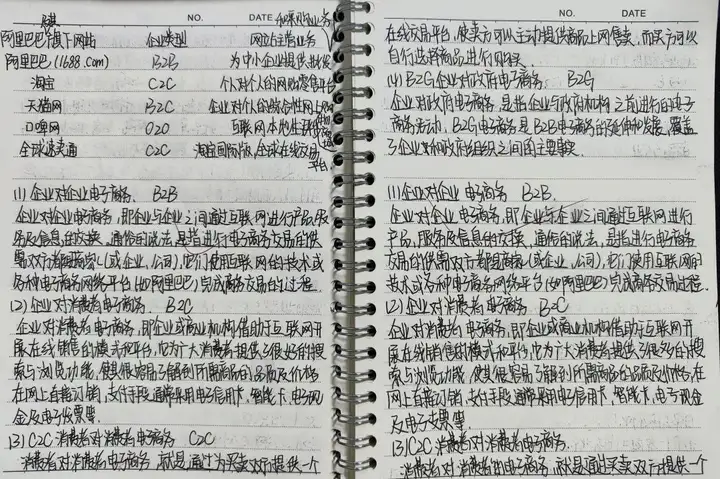 NO. DATE 和采购业务
阿里巴巴旗下网站 企业类型 网站主营业务
阿里巴巴(1688.com) B2B 为中小企业提供批发
淘宝 C2C 个人对个人的网购零售平台
天猫网 B2C 企业对个人的综合性网上购物
口啤网 O2O 互联网本地生活
全球速卖通 C2C 淘宝国际版,全球在线交易
平台
(1)企业对企业电子商务. B2B
企业对企业电子商务,即企业与企业之间通过互联网进行产品、服
务及信息的交换。通俗的说法,是指进行电子商务交易的供
需双方都是商家(或企业、公司),它们使用互联网的技术或
各种电子商务网络平台(如阿里巴巴)完成商务交易的过程.
(2)企业对消费者电子商务. B2C
企业对消费者电子商务,即企业或商业机构借助于互联网开
展在线销售的模式和平台,它为广大消费者提供了很好的搜
索与浏览功能,使其很容易了解到所需商品的品质及价格,
在网上直接订购,支付手段通常采用电子信用卡、智能卡、电子现
金及电子支票等.
(3)C2C 消费者对消费者电子商务. C2C
消费者对消费者电子商务,就是通过为买卖双方提供一个
NO. DATE
在线交易平台,使卖方可以主动提供商品上网售卖,而买方可以
自行选择商品进行购买.
(4)B2G企业对政府电子商务. B2G
企业对政府电子商务,是指企业与政府机构之间进行的电子
商务活动,B2G电子商务是B2B电子商务的延伸和发展,覆盖
了企业和政府组织之间的主要事项
(1)企业对企业电子商务 B2B.
企业对企业电子商务,即企业与企业之间通过互联网进行
产品、服务及信息的交换,通俗的说法,是指进行电子商务
交易的供需双方都是商家(或企业、公司),它们使用互联网的
技术或各种电子商务网络平台(如阿里巴巴)完成商务交易过程.
(2)企业对消费者电子商务 B2C
企业对消费者电子商务,即企业或商业机构借助于互联网开
展在线销售的模式和平台,它为广大消费者提供了很多的搜
索与浏览功能,使其很容易了解到所需商品的品质及价格,在
网上直接订购,支付手段通常采用电子信用卡、智能卡、电子现金
及电子支票等.
(3)C2C消费者对消费者电子商务.
消费者对消费者的电子商务,就是通过买卖双方提供一个